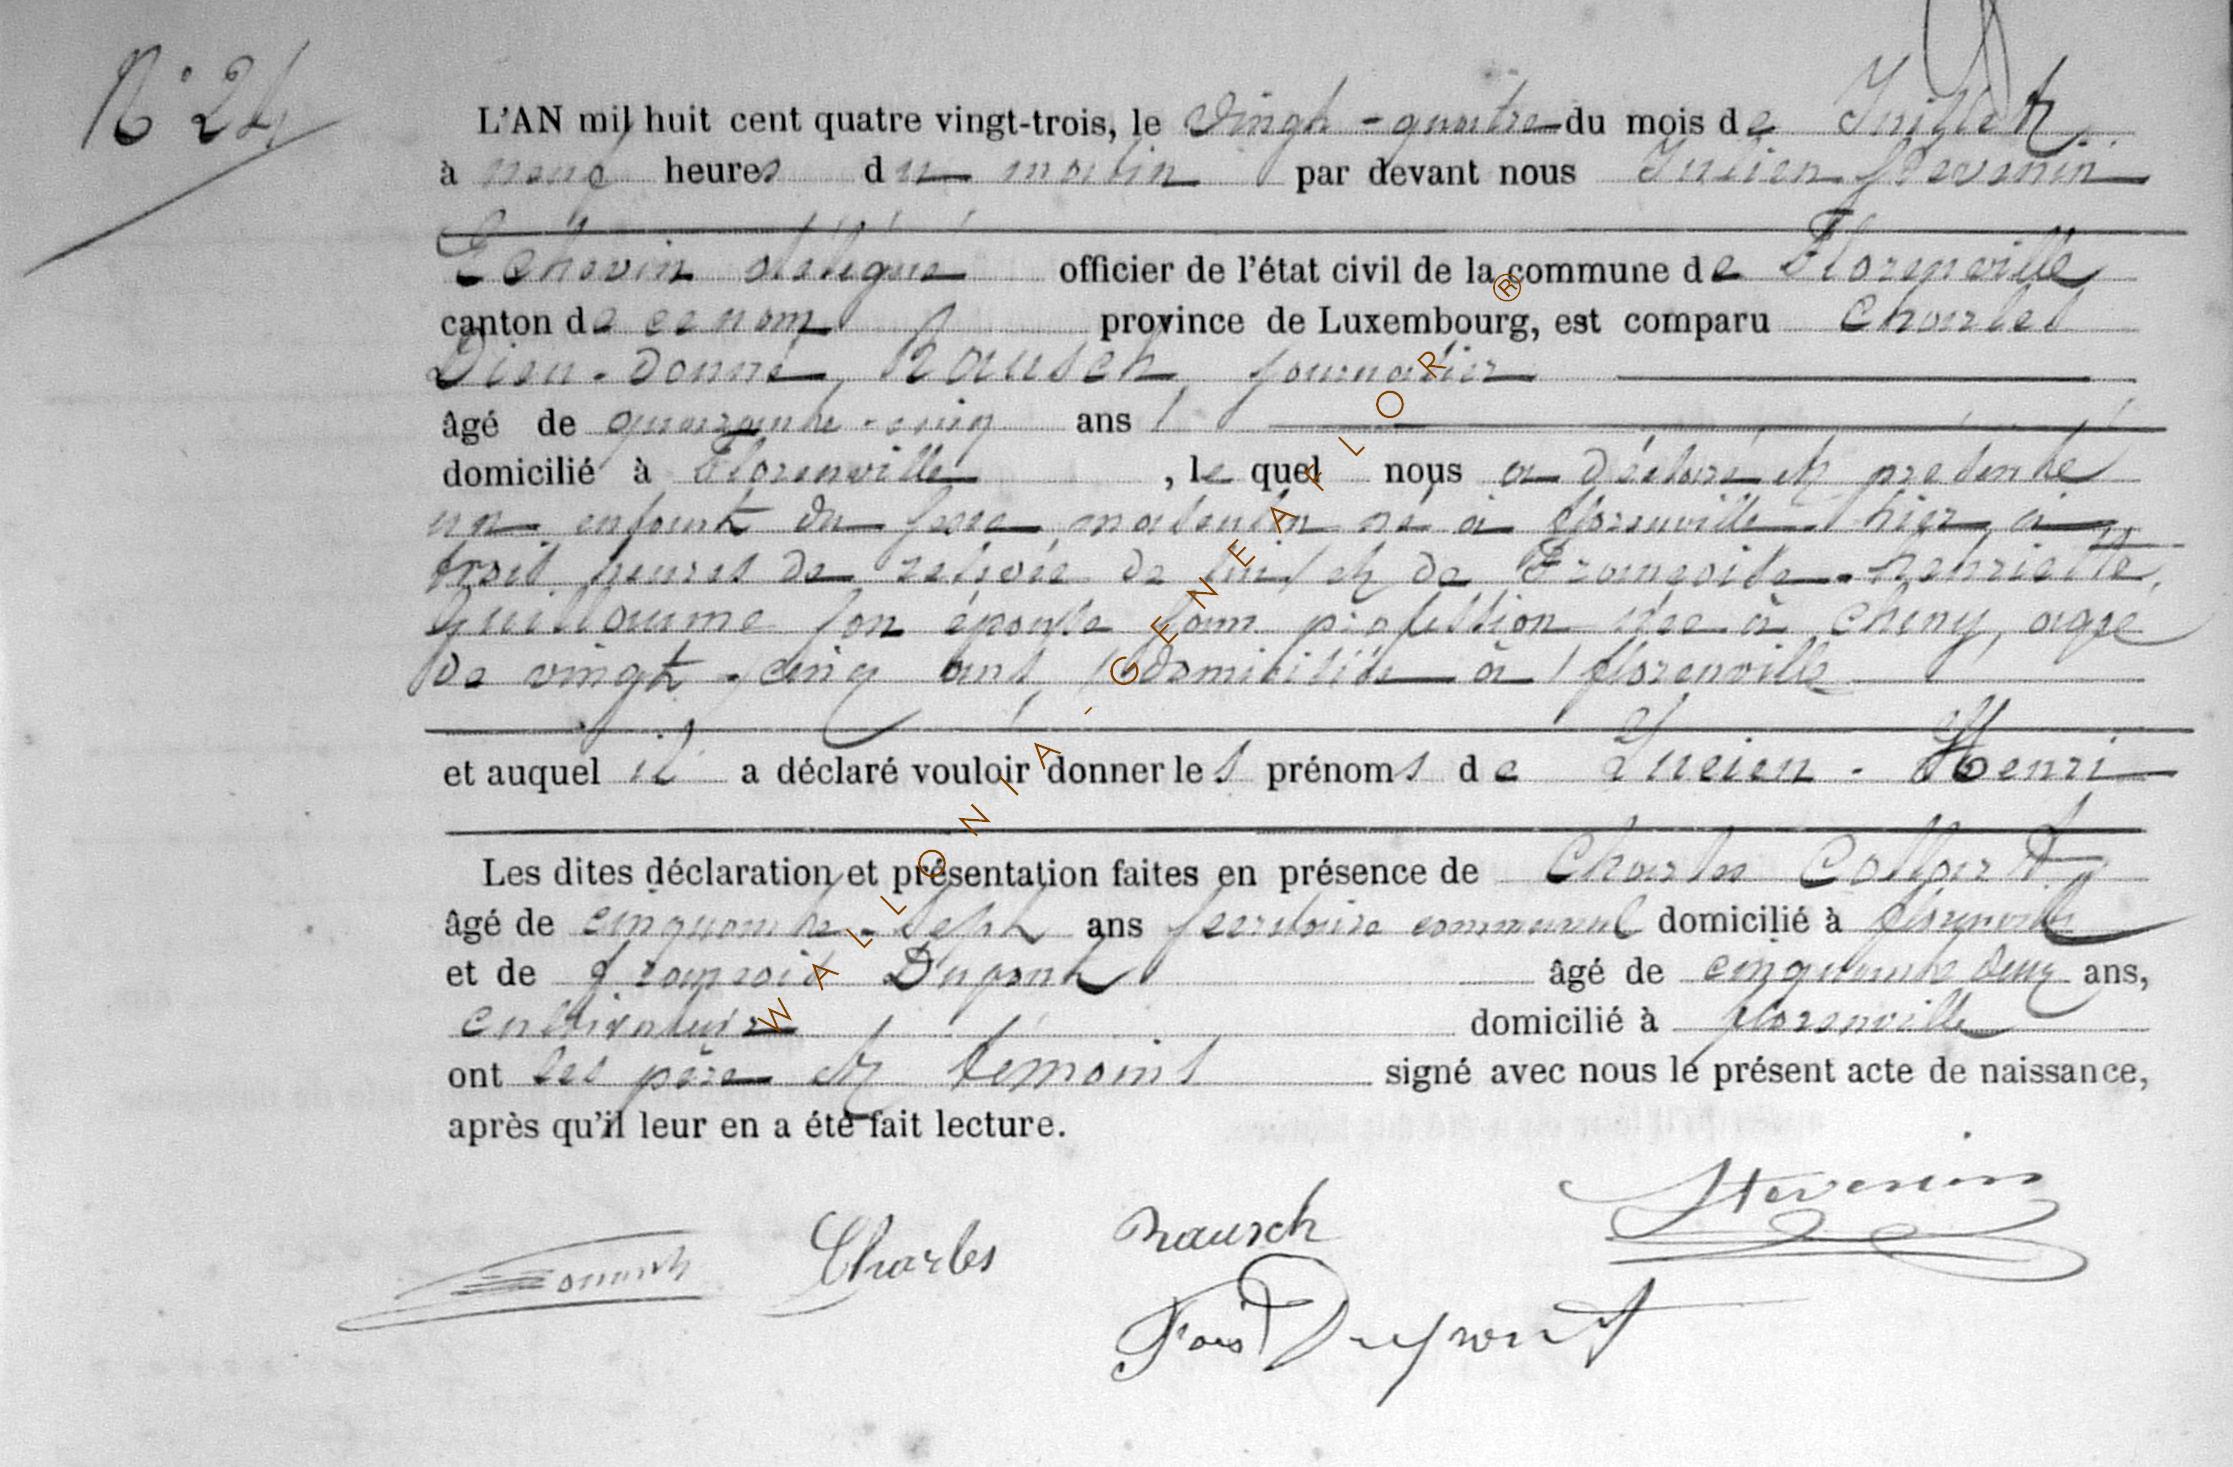 N° 24
L'AN mil huit cent quatre vingt-trois, le vingt-quatre du mois de Juillet,
à neuf heures du matin par devant nous Julien Stevenin
Echevin délégué officier de l'état civil de la commune de Florenville
canton de ce nom province de Luxembourg, est comparu Charles
Dieu-donné, Rausch, journalier
âgé de quarante-cinq ans,
domicilié à Florenville, le quel nous a déclaré et présenté
un enfant du sexe masculin né à florenville hier à
trois heures de relevée de lui, et de Françoise-henriette,
Guillaume son épouse sans profession née à Chiny, agée
de vingt-cinq ans, domiciliée à florenville
et auquel il a déclaré vouloir donner les prénoms de Lucien-Henri
Les dites déclaration et présentation faites en présence de Charles
âgé de cinquante-sept ans secrétaire communal domicilié à florenville
et de françois Dupont âgé de cinquante deux ans,
domicilié à florenville
ont les père et témoins signé avec nous le présent acte de naissance,
après qu'il leur en a été fait lecture.
Stevenin
Charles Rausch
Fois Dupont
WALLONIA-GENEAFLOR®